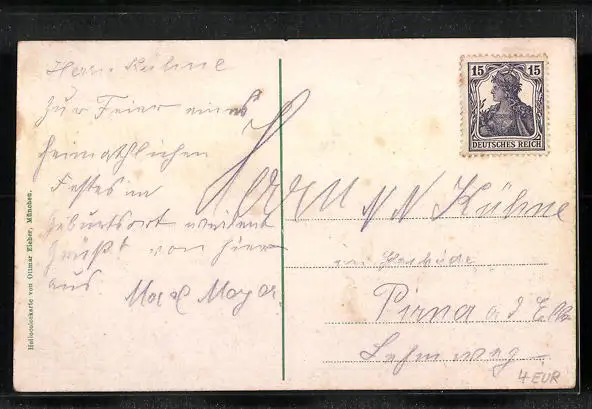 Herrn Kühne
Zur Feier eines
heimathlichen
Festes im
Geburtsort
grüßt von hier
aus Max Mayer.
Helioscolorkarte von Ottmar Zieher, München.
15 15
DEUTSCHES REICH
Herrn N N Kühne
Pirna a d Elbe
Lehmweg
4 EUR